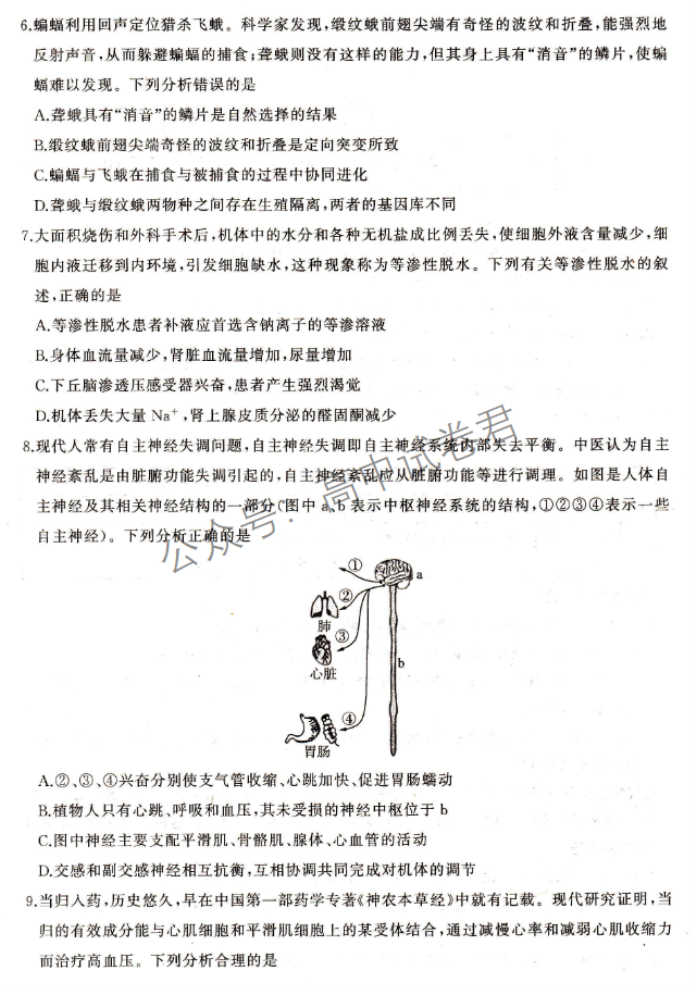 6.蝙蝠利用回声定位猎杀飞蛾。科学家发现,缎纹蛾前翅尖端有奇怪的波纹和折叠,能强烈地
反射声音,从而躲避蝙蝠的捕食;聋蛾则没有这样的能力,但其身上具有“消音”的鳞片,使蝙
蝠难以发现。下列分析错误的是
A.聋蛾具有“消音”的鳞片是自然选择的结果
B.缎纹蛾前翅尖端奇怪的波纹和折叠是定向突变所致
C.蝙蝠与飞蛾在捕食与被捕食的过程中协同进化
D.聋蛾与缎纹蛾两物种之间存在生殖隔离,两者的基因库不同
7.大面积烧伤和外科手术后,机体中的水分和各种无机盐成比例丢失,使细胞外液含量减少,细
胞内液迁移到内环境,引发细胞缺水,这种现象称为等渗性脱水。下列有关等渗性脱水的叙
述,正确的是
A.等渗性脱水患者补液应首选含钠离子的等渗溶液
B.身体血流量减少,肾脏血流量增加,尿量增加
C.下丘脑渗透压感受器兴奋,患者产生强烈渴觉
D.机体丢失大量 Na⁺,肾上腺皮质分泌的醛固酮减少
8.现代人常有自主神经失调问题,自主神经失调即自主神经系统内部失去平衡。中医认为自主
神经紊乱是由脏腑功能失调引起的,自主神经紊乱应从脏腑功能等进行调理。如图是人体自
主神经及其相关神经结构的一部分(图中 a、b 表示中枢神经系统的结构,①②③④表示一些
自主神经)。下列分析正确的是
公众号:高中试卷君
①
a
②
肺
③
心脏
b
④
胃肠
A.②、③、④兴奋分别使支气管收缩、心跳加快、促进胃肠蠕动
B.植物人只有心跳、呼吸和血压,其未受损的神经中枢位于 b
C.图中神经主要支配平滑肌、骨骼肌、腺体、心血管的活动
D.交感和副交感神经相互抗衡,互相协调共同完成对机体的调节
9.当归入药,历史悠久,早在中国第一部药学专著《神农本草经》中就有记载。现代研究证明,当
归的有效成分能与心肌细胞和平滑肌细胞上的某受体结合,通过减慢心率和减弱心肌收缩力
而治疗高血压。下列分析合理的是